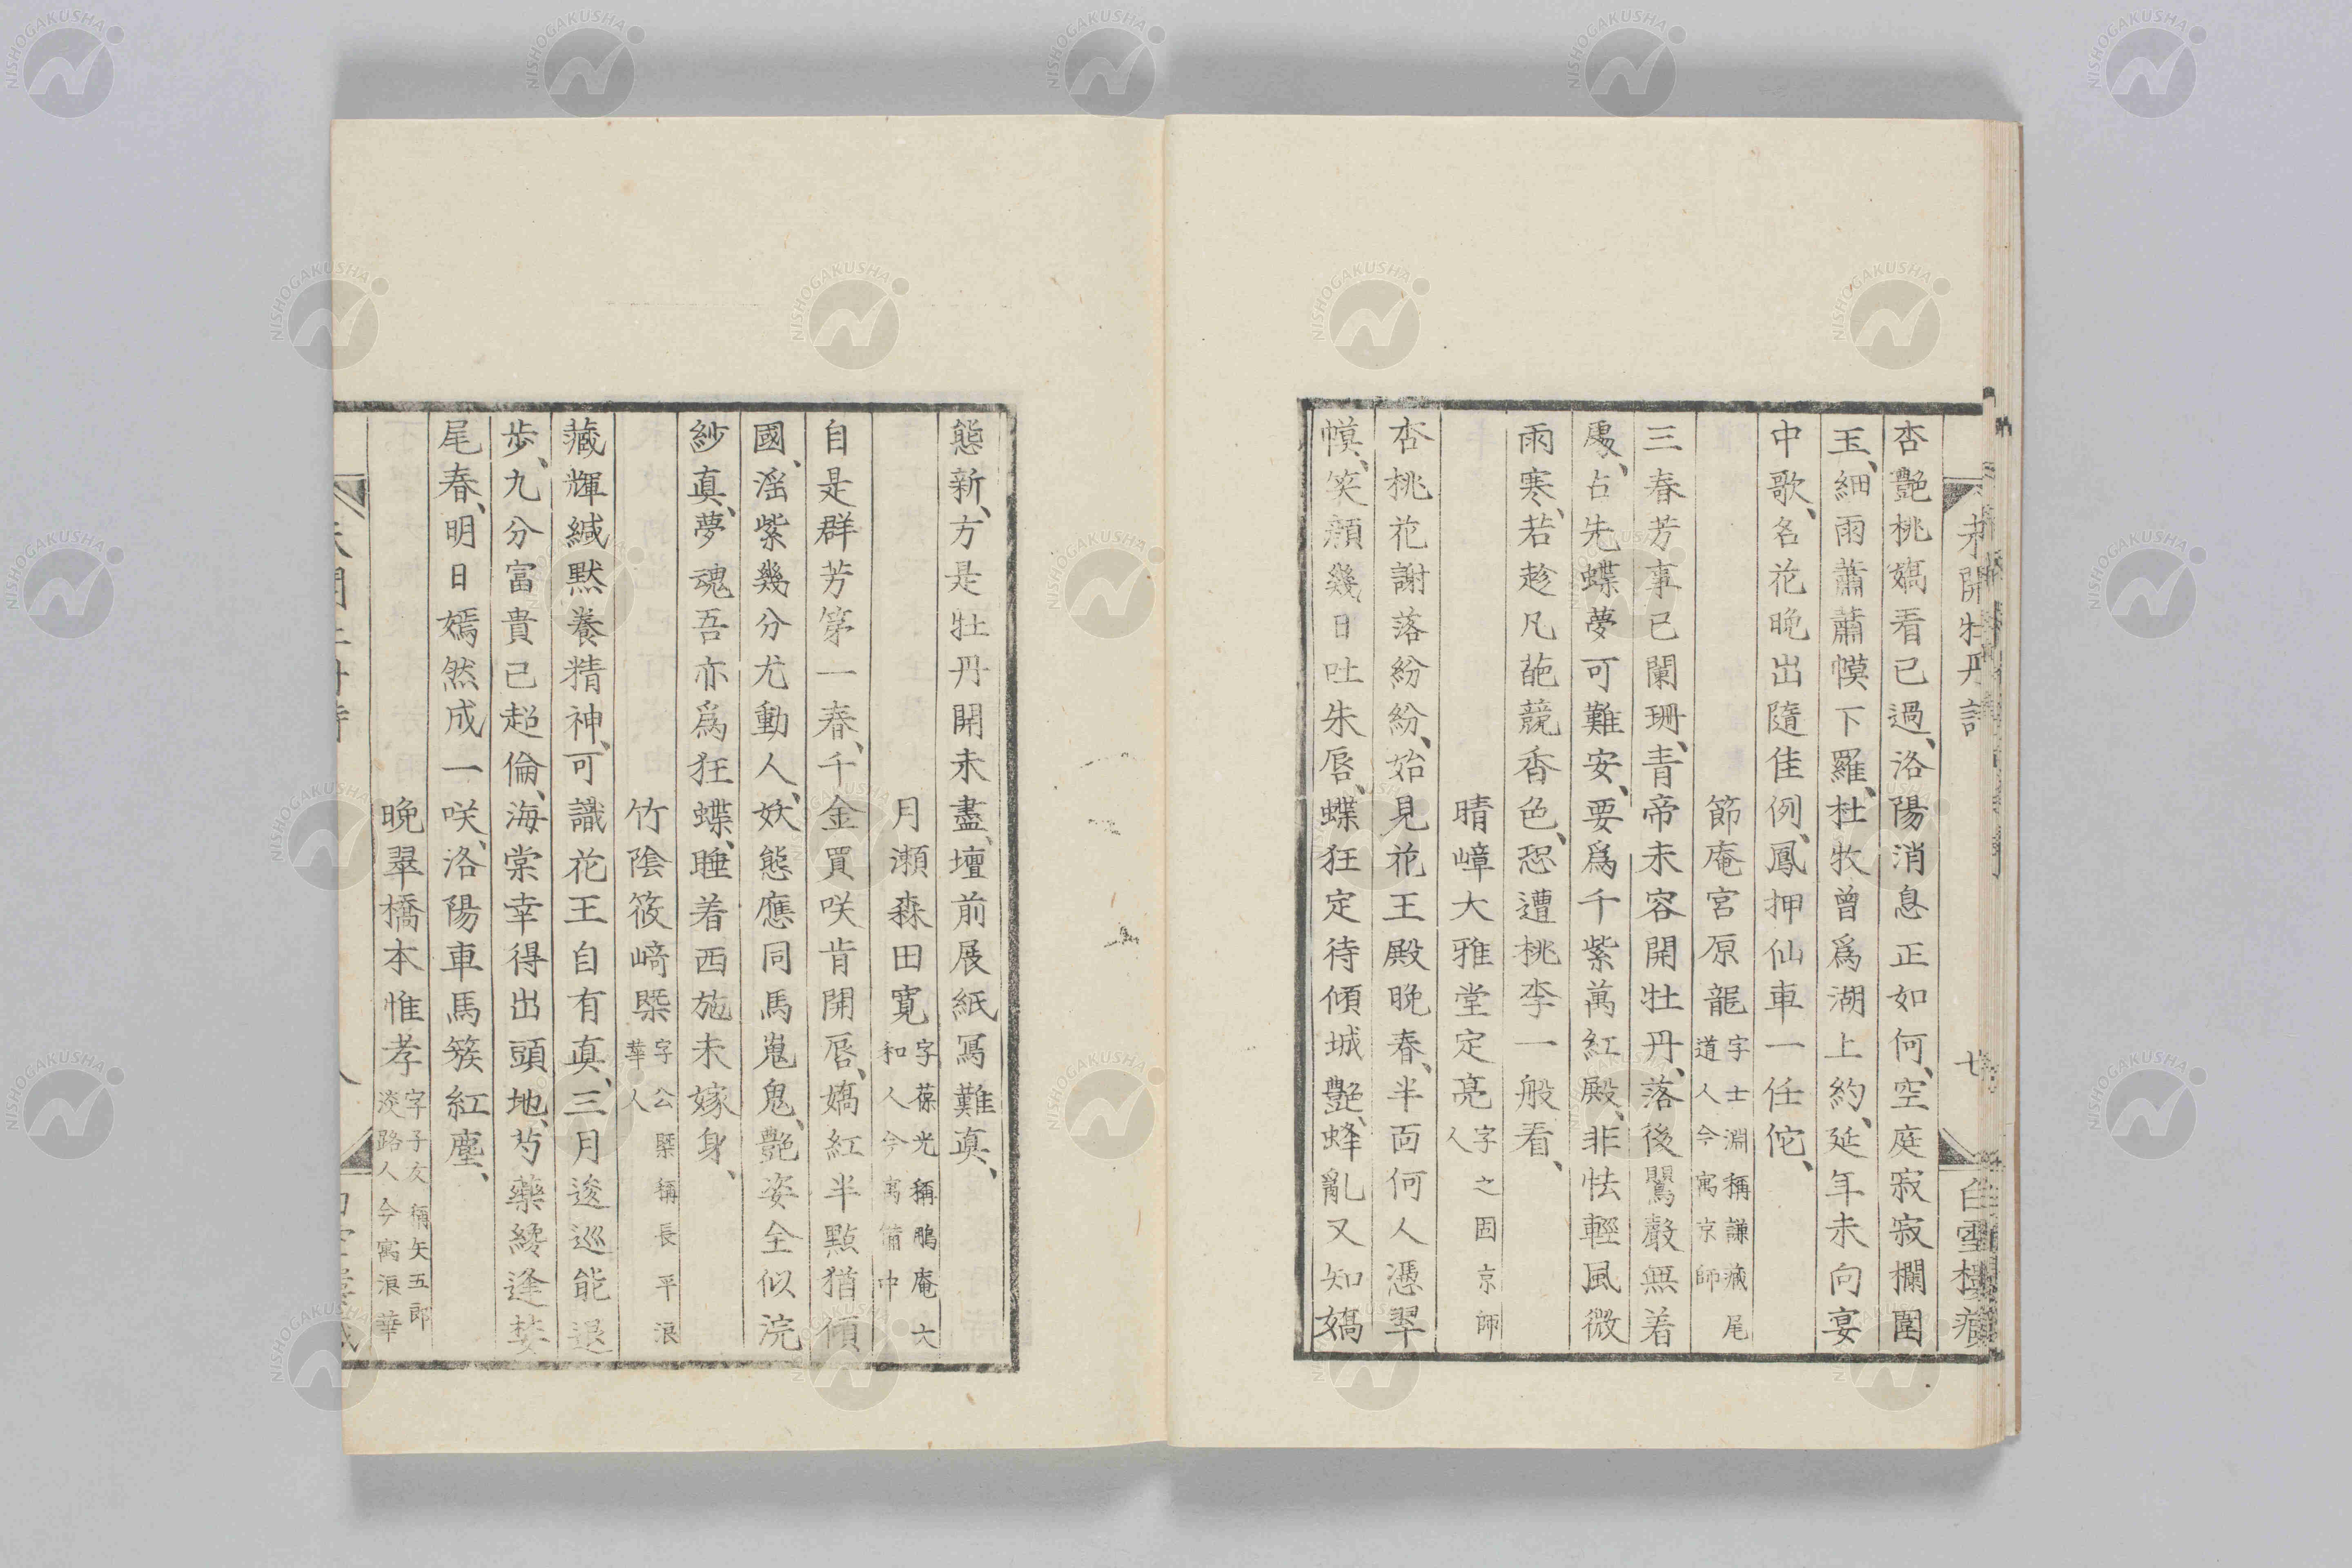 未開牡丹詩 七 白雪樓藏
杏艷桃嬌看已過、洛陽消息正如何、空庭寂寂欄圍
玉、細雨蕭蕭幙下羅、杜牧曾爲湖上約、延年未向宴
中歌、名花晩出隨佳例、鳳押仙車一任佗、
節庵宮原龍字士淵稱謙藏尾道人今寓京師
三春芳事已闌珊、青帝未容開牡丹、落後鸎聲無着
處、占先蝶夢可難安、要爲千紫萬紅殿、非怯輕風微
雨寒、若趁凡葩競香色、恐遭桃李一般看、
晴嶂大雅堂定亮字之固京師人
杏桃花謝落紛紛、始見花王殿晩春、半面何人憑翠
幙、笑顔幾日吐朱唇、蝶狂定待傾城艷、蜂亂又知嬌
態新、方是牡丹開未盡、壇前展紙冩難眞、
月瀬森田寛字葆光稱鵰庵大和人今寓備中
自是群芳第一春、千金買咲肯開唇、嬌紅半點猶傾
國、滛紫幾分尤動人、妖態應同馬嵬鬼、艷姿全似浣
紗眞、夢魂吾亦爲狂蝶、睡着西施未嫁身、
竹陰筱﨑槩字公槩稱長平浪華人
藏輝緘默養精神、可識花王自有眞、三月逡巡能退
步、九分富貴已超倫、海棠幸得出頭地、芍藥纔逢婪
尾春、明日嫣然成一咲、洛陽車馬簇紅塵、
晩翠橋本惟孝字子友稱矢五郎淡路人今寓浪華
NISHOGAKUSHA